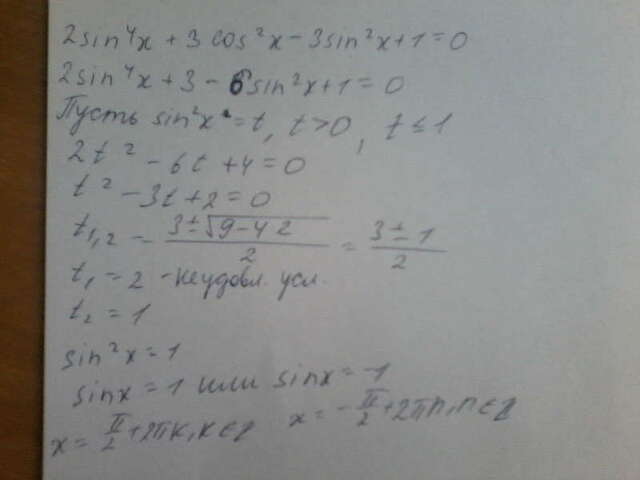 2sin⁴x + 3cos²x - 3sin²x + 1 = 0
2sin⁴x + 3 - 6sin²x + 1 = 0
Пусть sin²x = t, t > 0, t ≤ 1
2t² - 6t + 4 = 0
t² - 3t + 2 = 0
t₁,₂ = (3 ± √(9-4·2))/2 = (3 ± 1)/2
t₁ = 2 - неудовл. усл.
t₂ = 1
sin²x = 1
sinx = 1 или sinx = -1
x = π/2 + 2πk, k∈Z x = -π/2 + 2πn, n∈Z